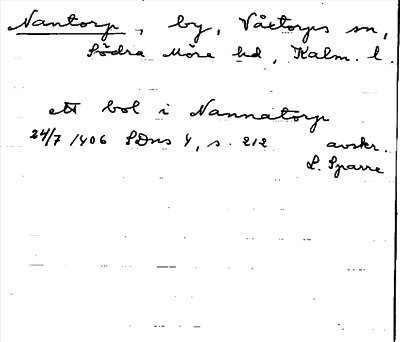 Nantorp, by, Våxtorps sn,
Södra Möre hd, Kalm. l.
ett bol i Nannatorp
24/7 1406 SDns 4, s. 212 avskr.
L. Sparre